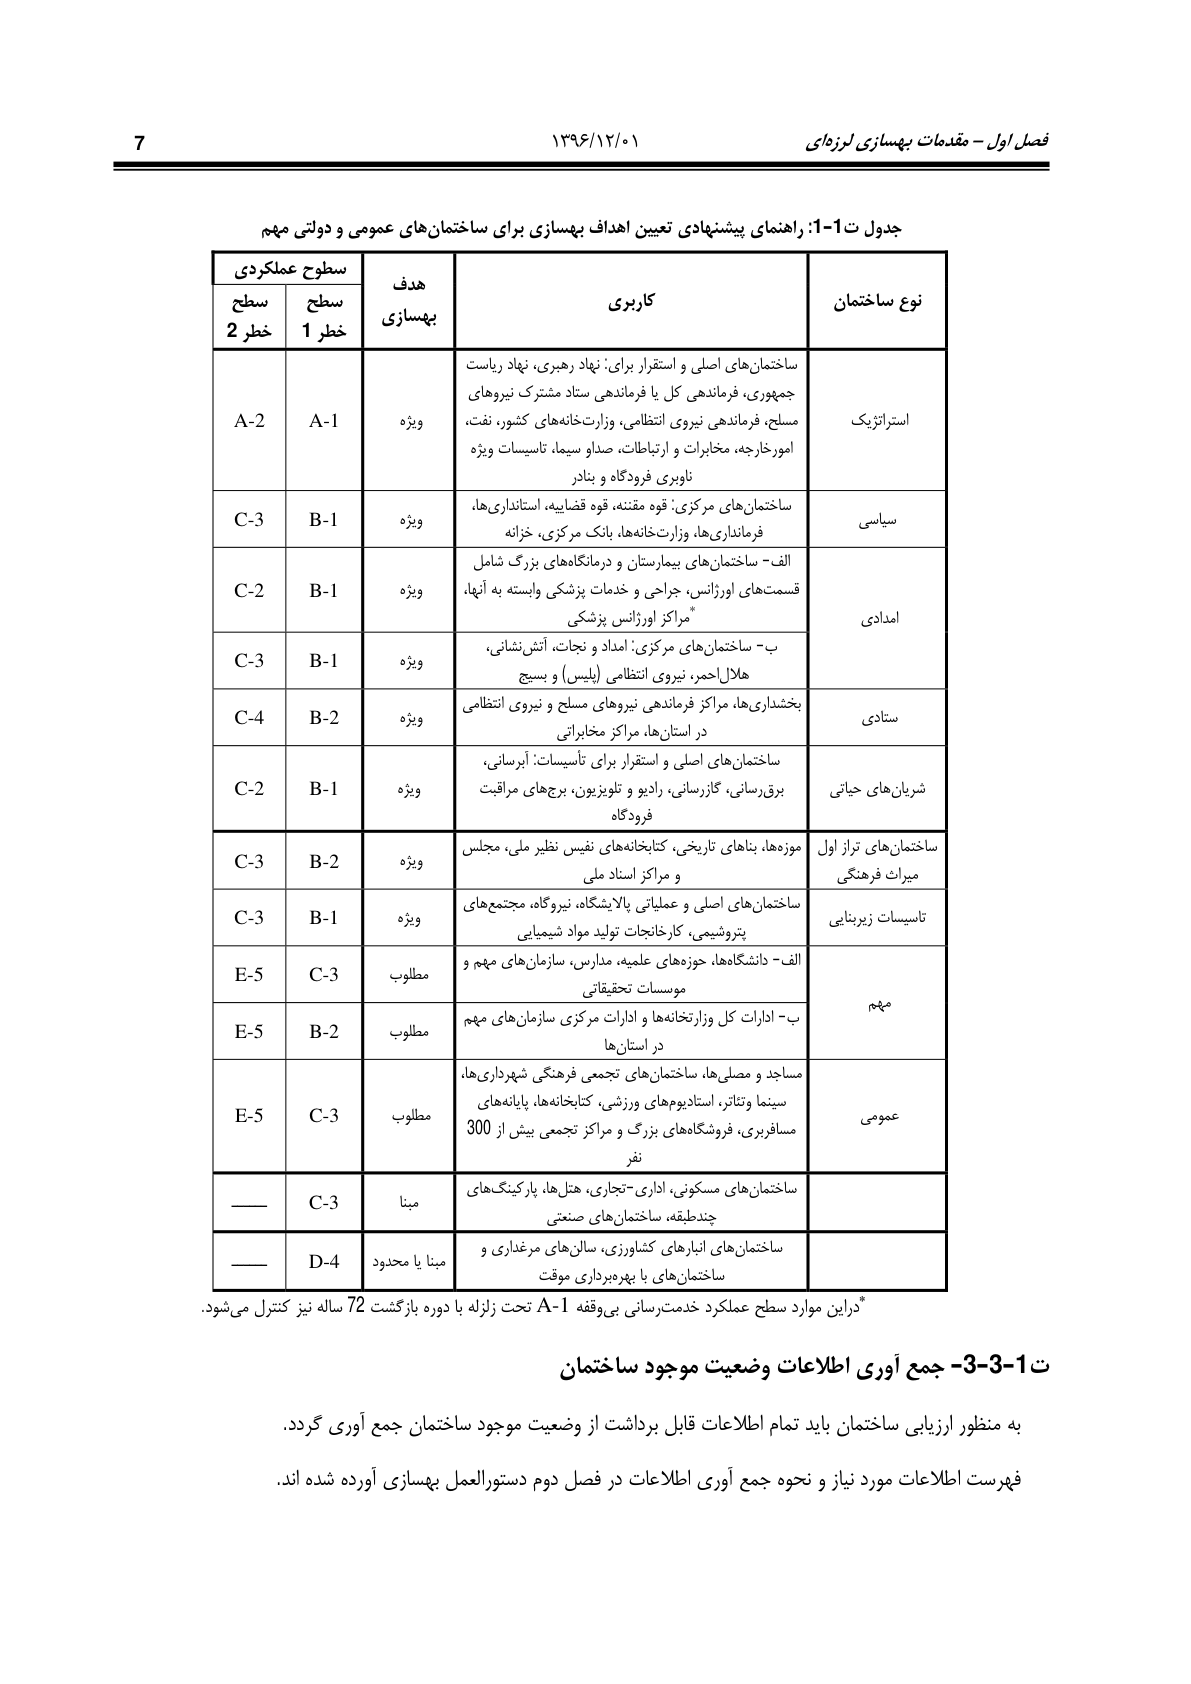 فصل اول – مقدمات بهسازی لرزه‌ای
۱۳۹۶/۱۲/۰۱
7
جدول ت1-1: راهنمای پیشنهادی تعیین اهداف بهسازی برای ساختمان‌های عمومی و دولتی مهم
نوع ساختمان
کاربری
هدف
بهسازی
سطوح عملکردی
سطح
خطر 1
سطح
خطر 2
استراتژیک
ساختمان‌های اصلی و استقرار برای: نهاد رهبری، نهاد ریاست
جمهوری، فرماندهی کل یا فرماندهی ستاد مشترک نیروهای
مسلح، فرماندهی نیروی انتظامی، وزارت‌خانه‌های کشور، نفت،
امورخارجه، مخابرات و ارتباطات، صداو سیما، تاسیسات ویژه
ناوبری فرودگاه و بنادر
ویژه
A-1
A-2
سیاسی
ساختمان‌های مرکزی: قوه مقننه، قوه قضاییه، استانداری‌ها،
فرمانداری‌ها، وزارت‌خانه‌ها، بانک مرکزی، خزانه
ویژه
B-1
C-3
امدادی
الف- ساختمان‌های بیمارستان و درمانگاه‌های بزرگ شامل
قسمت‌های اورژانس، جراحی و خدمات پزشکی وابسته به آنها،
*مراکز اورژانس پزشکی
ویژه
B-1
C-2
ب- ساختمان‌های مرکزی: امداد و نجات، آتش‌نشانی،
هلال‌احمر، نیروی انتظامی (پلیس) و بسیج
ویژه
B-1
C-3
ستادی
بخشداری‌ها، مراکز فرماندهی نیروهای مسلح و نیروی انتظامی
در استان‌ها، مراکز مخابراتی
ویژه
B-2
C-4
شریان‌های حیاتی
ساختمان‌های اصلی و استقرار برای تأسیسات: آبرسانی،
برق‌رسانی، گازرسانی، رادیو و تلویزیون، برج‌های مراقبت
فرودگاه
ویژه
B-1
C-2
ساختمان‌های تراز اول
میراث فرهنگی
موزه‌ها، بناهای تاریخی، کتابخانه‌های نفیس نظیر ملی، مجلس
و مراکز اسناد ملی
ویژه
B-2
C-3
تاسیسات زیربنایی
ساختمان‌های اصلی و عملیاتی پالایشگاه، نیروگاه، مجتمع‌های
پتروشیمی، کارخانجات تولید مواد شیمیایی
ویژه
B-1
C-3
مهم
الف- دانشگاه‌ها، حوزه‌های علمیه، مدارس، سازمان‌های مهم و
موسسات تحقیقاتی
مطلوب
C-3
E-5
ب- ادارات کل وزارتخانه‌ها و ادارات مرکزی سازمان‌های مهم
در استان‌ها
مطلوب
B-2
E-5
عمومی
مساجد و مصلی‌ها، ساختمان‌های تجمعی فرهنگی شهرداری‌ها،
سینما وتئاتر، استادیوم‌های ورزشی، کتابخانه‌ها، پایانه‌های
مسافربری، فروشگاه‌های بزرگ و مراکز تجمعی بیش از 300
نفر
مطلوب
C-3
E-5
ساختمان‌های مسکونی، اداری-تجاری، هتل‌ها، پارکینگ‌های
چندطبقه، ساختمان‌های صنعتی
مبنا
C-3
——
ساختمان‌های انبارهای کشاورزی، سالن‌های مرغداری و
ساختمان‌های با بهره‌برداری موقت
مبنا یا محدود
D-4
——
*دراین موارد سطح عملکرد خدمت‌رسانی بی‌وقفه A-1 تحت زلزله با دوره بازگشت 72 ساله نیز کنترل می‌شود.
ت1-3-3- جمع آوری اطلاعات وضعیت موجود ساختمان
به منظور ارزیابی ساختمان باید تمام اطلاعات قابل برداشت از وضعیت موجود ساختمان جمع آوری گردد.
فهرست اطلاعات مورد نیاز و نحوه جمع آوری اطلاعات در فصل دوم دستورالعمل بهسازی آورده شده اند.